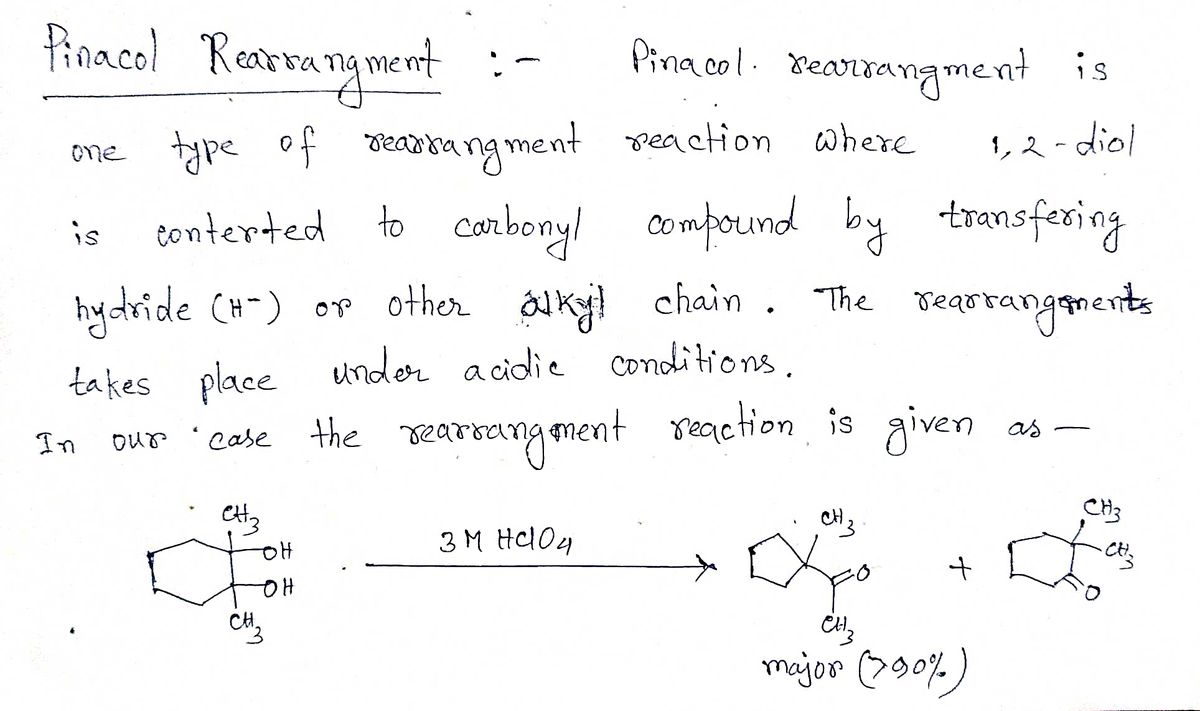 Pinacol Rearrangment :- Pinacol. rearrangment is
one type of rearrangment reaction where 1,2-diol
is conterted to carbonyl compound by transfering
hydride (H-) or other alkyl chain. The rearrangments
takes place under acidic conditions.
In our case the rearrangment reaction is given as —
CH3
OH
OH
CH3
3 M HClO4
CH3
O
CH3
+
CH3
CH3
O
major (>90%)